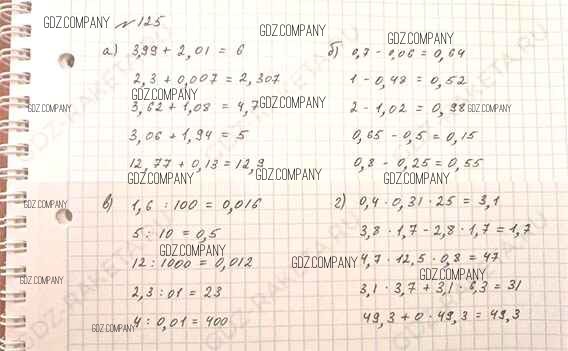 GDZ.COMPANY
№ 125
GDZ.COMPANY
а) 3,99 + 2,01 = 6
2,3 + 0,007 = 2,307
GDZ.COMPANY
3,62 + 1,08 = 4,7
GDZ.COMPANY
3,06 + 1,94 = 5
12,77 + 0,13 = 12,9
GDZ.COMPANY
б) 0,7 - 0,06 = 0,64
1 - 0,48 = 0,52
2 - 1,02 = 0,98
GDZ.COMPANY
0,65 - 0,5 = 0,15
0,8 - 0,25 = 0,55
GDZ.COMPANY
GDZ.COMPANY
GDZ.COMPANY
GDZ.COMPANY
в) 1,6 : 100 = 0,016
5 : 10 = 0,5
GDZ.COMPANY
12 : 1000 = 0,012
GDZ.COMPANY
2,3 : 01 = 23
4 : 0,01 = 400
GDZ.COMPANY
г) 0,4 · 0,31 · 25 = 3,1
3,8 · 1,7 - 2,8 · 1,7 = 1,7
GDZ.COMPANY
4,7 · 12,5 · 0,8 = 47
GDZ.COMPANY
3,1 · 3,7 + 3,1 · 6,3 = 31
49,3 + 0 · 49,3 = 49,3
GDZ-RAKETA.RU